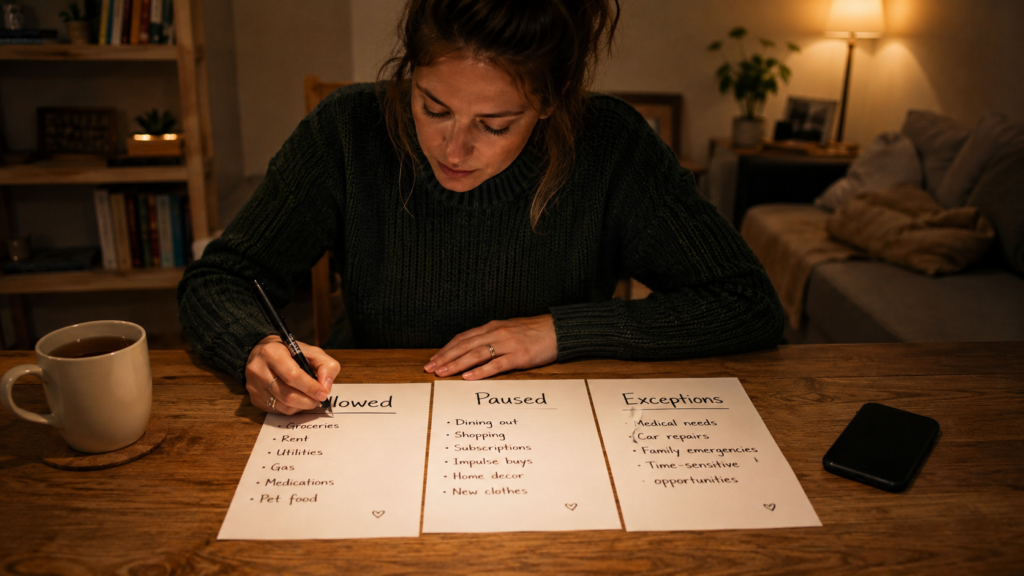 llowed
• Groceries
• Rent
• Utilities
• Gas
• Medications
• Pet food
Paused
• Dining out
• Shopping
• Subscriptions
• Impulse buys
• Home decor
• New clothes
Exceptions
Medical needs
Car repairs
• Family emergencies
• Time-sensitive
opportunities